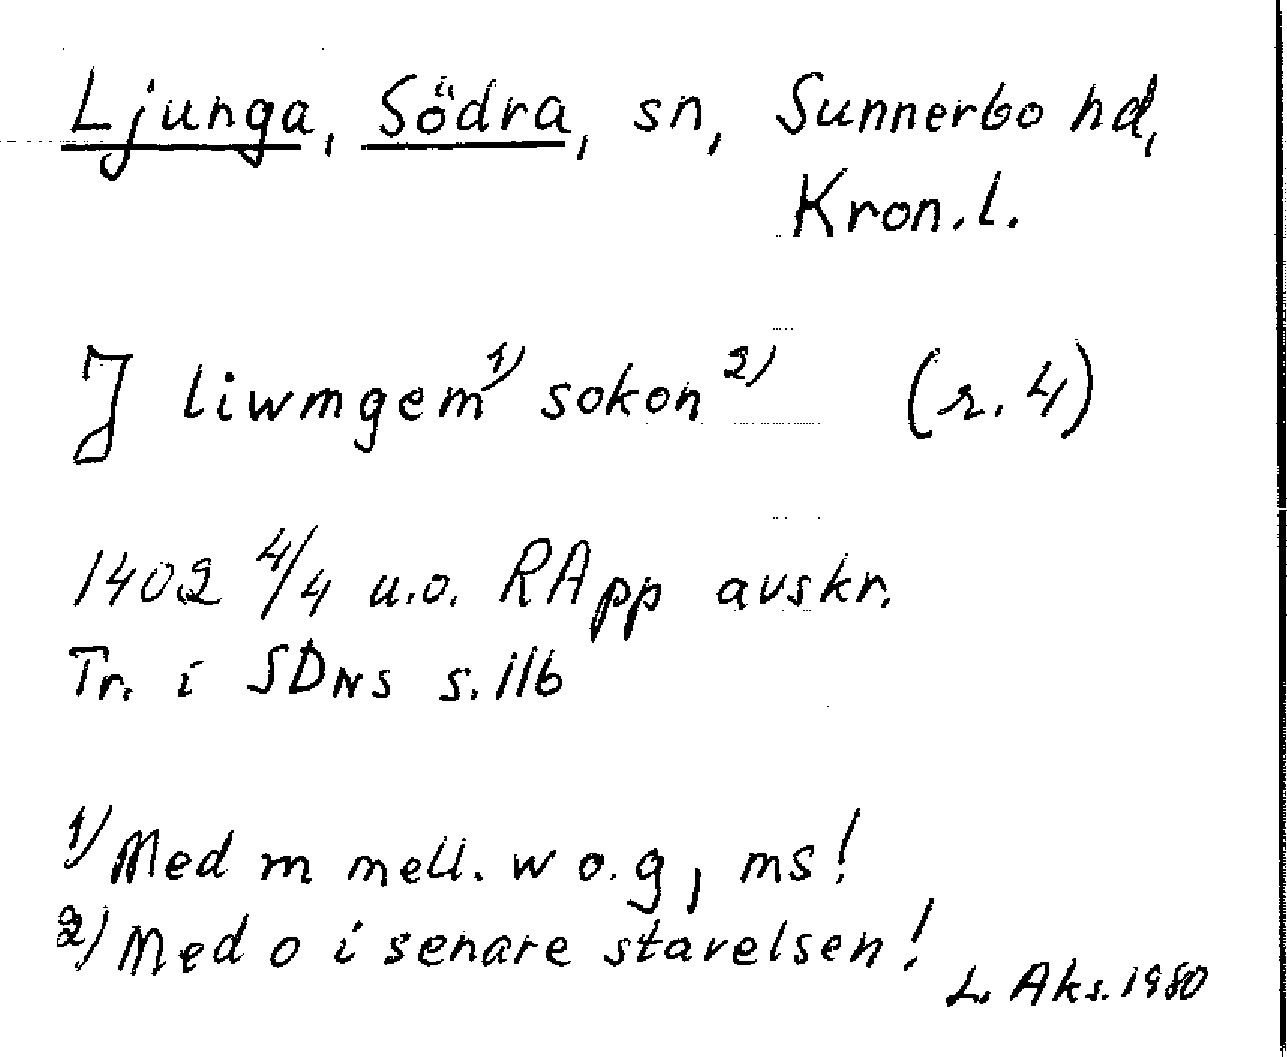 Ljunga, Södra, sn, Sunnerbo hd,
Kron.l.
J liwmgem 1) sokon 2) (r. 4)
1402 4/4 u.o. RApp avskr.
Tr. i SDNS s. 116
1) Med m mell. w o. g, ms!
2) Med o i senare stavelsen!
L. Aks. 1980